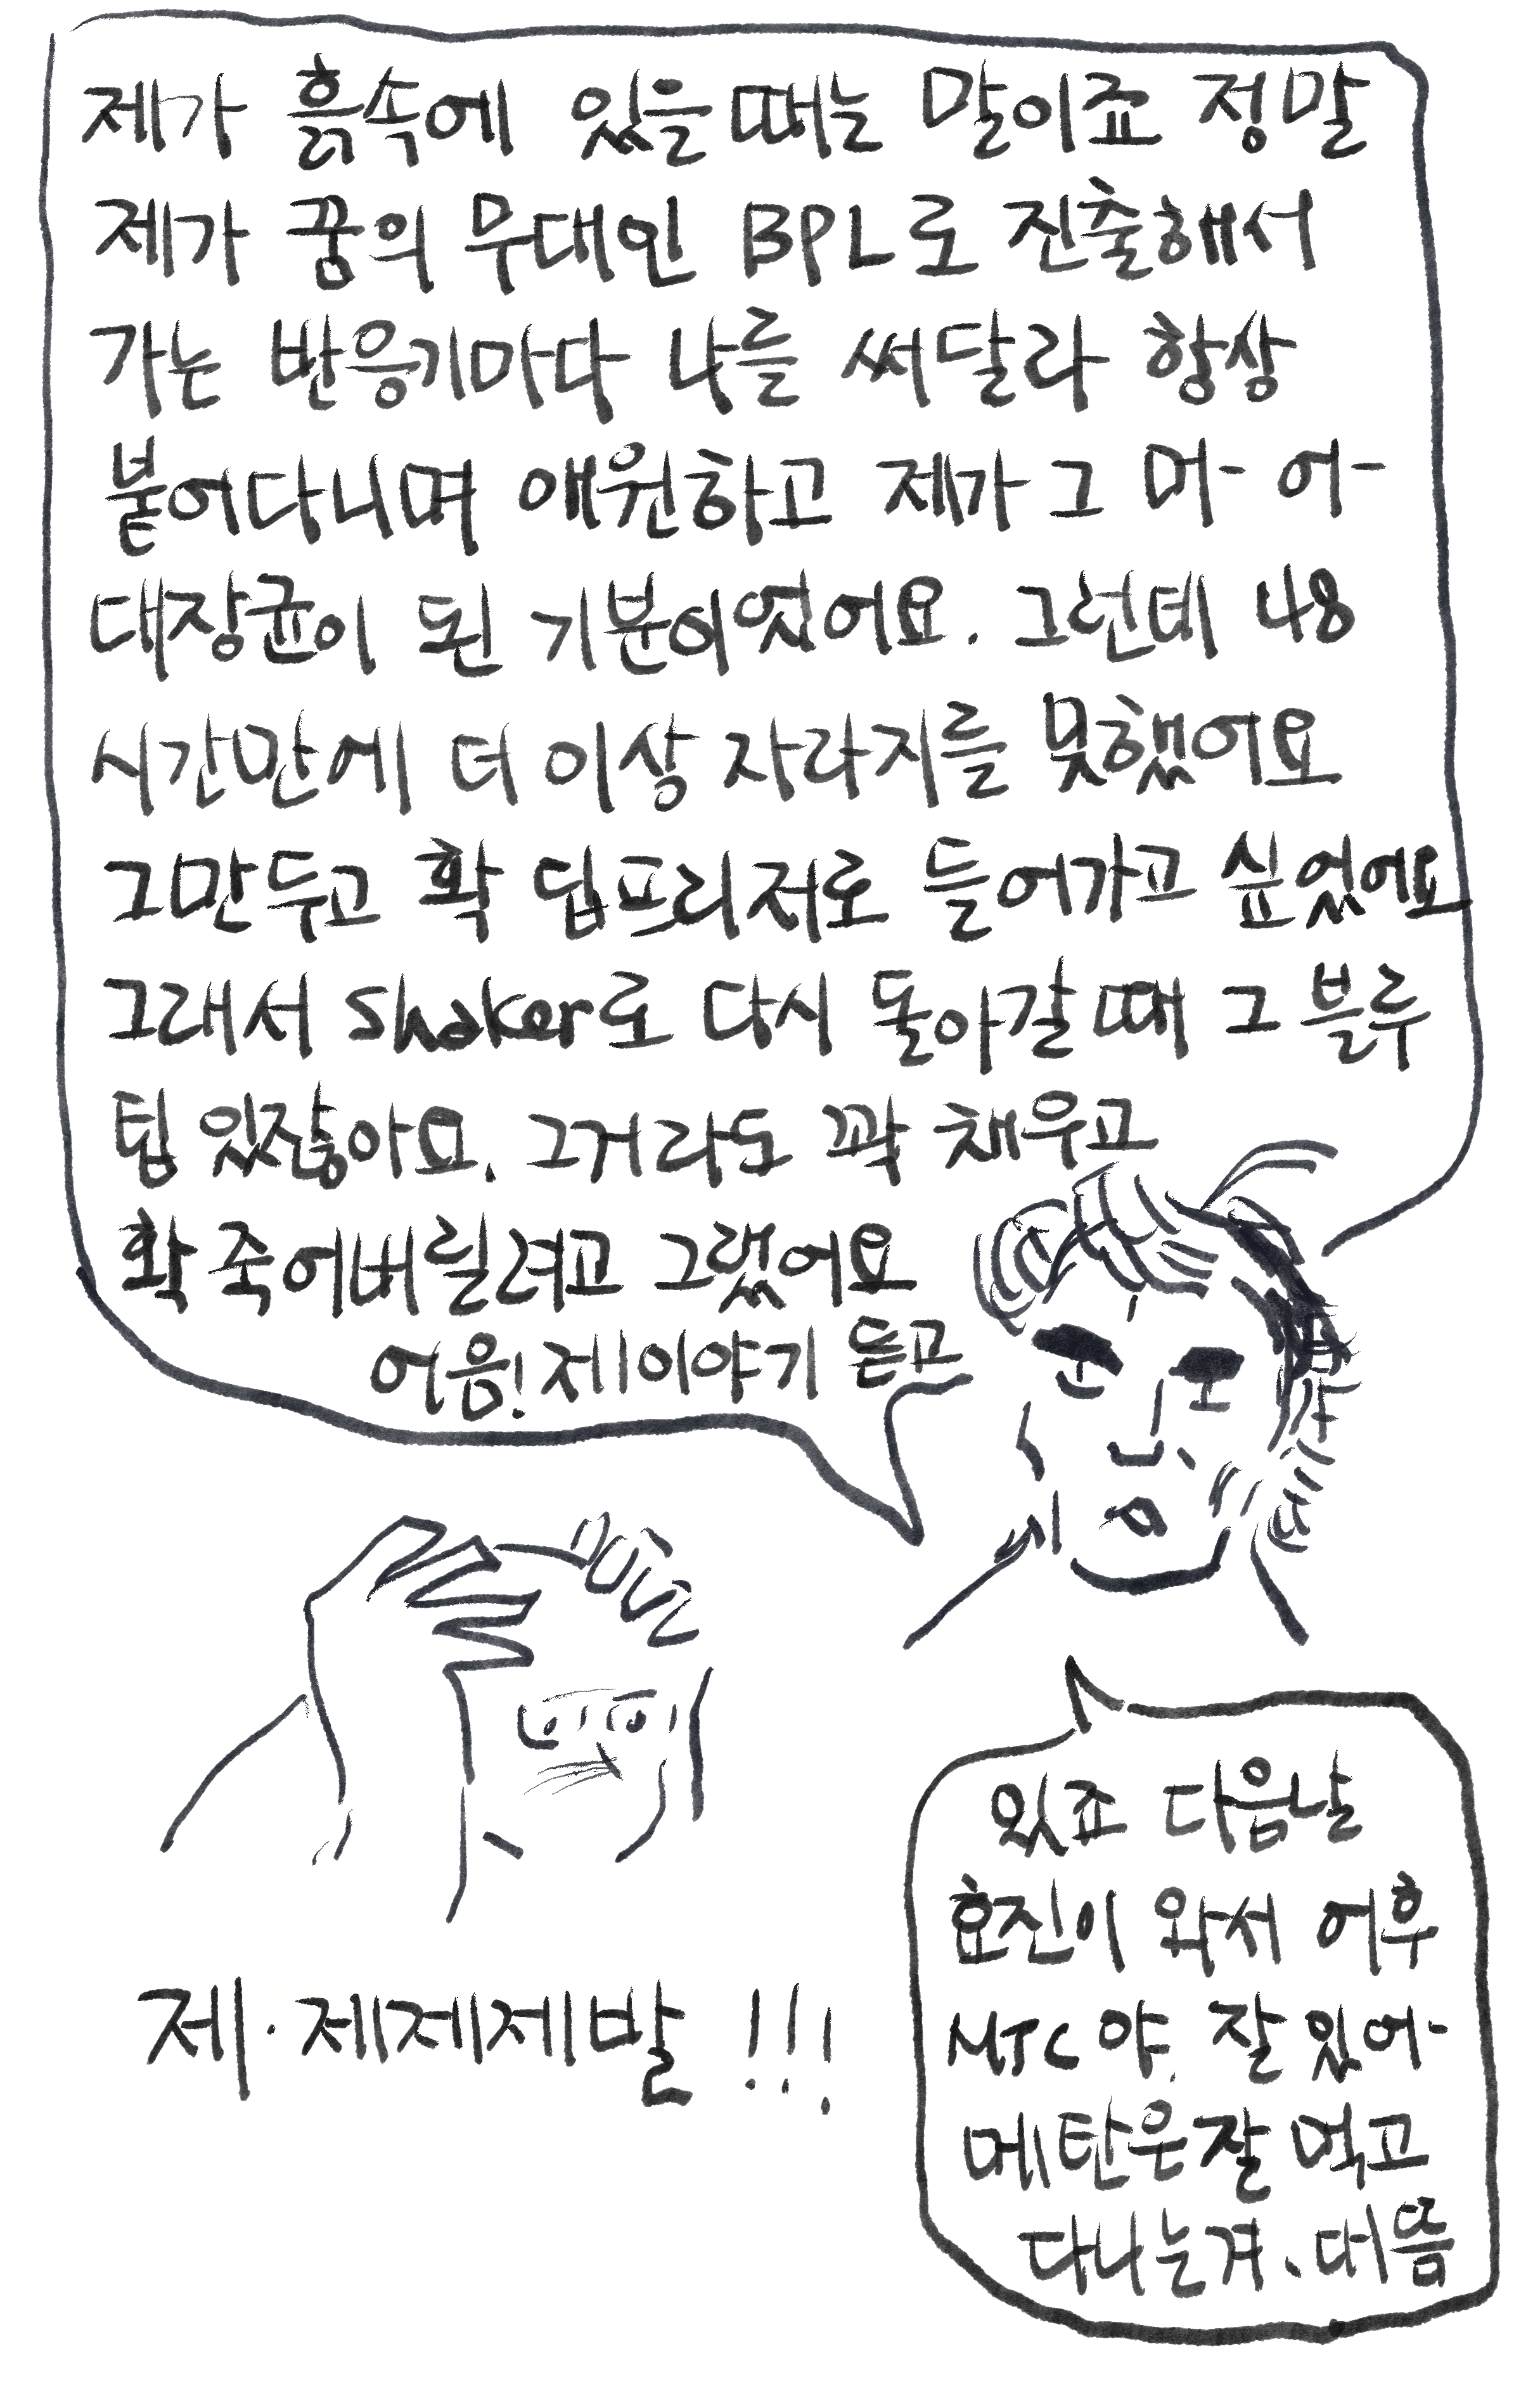 제가 흙속에 있을때는 말이죠 정말
제가 꿈의 무대인 BPL로 진출해서
가는 반응기마다 나를 써달라 항상
붙어다니며 애원하고 제가 그 머- 어-
대장균이 된 기분이었어요. 그런데 48
시간만에 더 이상 자라지를 못했어요
그만두고 확 딥프리저로 들어가고 싶었어요
그래서 shaker로 다시 돌아갈때 그 블루
팁 있잖아요. 그거라도 꽉 채우고
확 죽어버릴려고 그랬어요
어음! 제 이야기 듣고
있죠 다음날
효진이 와서 어후
MTC야. 잘 있어-
메탄은 잘 먹고
다니는겨. 대뜸
제·제제제발 !!!